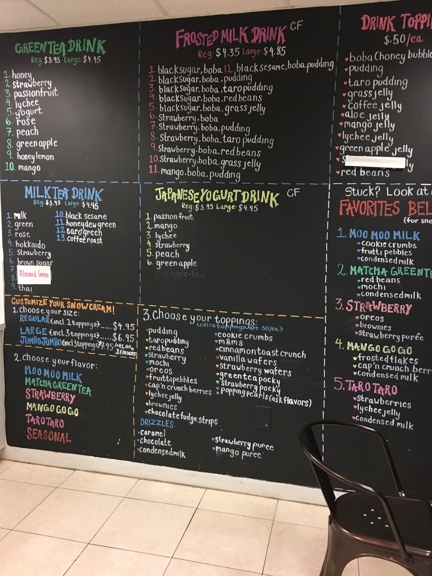 GREEN TEA DRINK
Reg $3.95 Large $4.45
1. honey
2. strawberry
3. passionfruit
4. lychee
5. yogurt
6. rose
7. peach
8. green apple
9. honey lemon
10. mango
FROSTED MILK DRINK CF
Reg $4.35 Large $4.85
1. black sugar, boba 12. black sesame, boba, pudding
2. black sugar, boba, pudding
3. black sugar, boba, taro pudding
4. black sugar, boba, red beans
5. black sugar, boba, grass jelly
6. strawberry, boba
7. strawberry, boba, pudding
8. strawberry, boba, taro pudding
9. strawberry, boba, red beans
10. strawberry, boba, grass jelly
11. mango, boba, pudding
DRINK TOPPI
$.50/ea
boba (chewy bubble
pudding
taro pudding
grass jelly
coffee jelly
aloe jelly
mango jelly
lychee jelly
green apple jelly
red beans
MILK TEA DRINK
Reg $3.95 Large $4.45
1. milk
2. green
3. rose
4. hokkaido
5. strawberry
6. brown sugar
Almond Green
9. thai
10. black sesame
11. honeydew green
12. taro green
13. coffee roast
JAPANESE YOGURT DRINK CF
Reg $3.95 Large $4.45
1. passion fruit
2. mango
3. lychee
4. strawberry
5. peach
6. green apple
Stuck? Look at
FAVORITES BEL
(for sno
1. MOO MOO MILK
cookie crumbs
fruity pebbles
condensed milk
2. MATCHA GREEN TE
red beans
mochi
condensed milk
3. STRAWBERRY
oreos
brownies
strawberry purée
4. MANGO GO GO
frosted flakes
cap'n crunch berr
condensed milk
5. TARO TARO
strawberries
lychee jelly
condensed milk
CUSTOMIZE YOUR SNOWCREAM!
1. choose your size:
REGULAR (incl. 2 toppings) .... $4.95
LARGE (incl. 3 toppings) .... $6.95
JUMBO JUMBO
2. choose your flavor:
MOO MOO MILK
MATCHA GREEN TEA
STRAWBERRY
MANGO GO GO
TARO TARO
SEASONAL
3. Choose your toppings:
pudding
taro pudding
red beans
strawberry
mochi
oreos
fruity pebbles
cap'n crunch berries
lychee jelly
brownies
chocolate fudge strips
cookie crumbs
m&ms
cinnamon toast crunch
vanilla wafers
strawberry wafers
green tea pocky
strawberry pocky
popping pearls (ask flavors)
DRIZZLES
caramel
chocolate
condensed milk
strawberry puree
mango puree